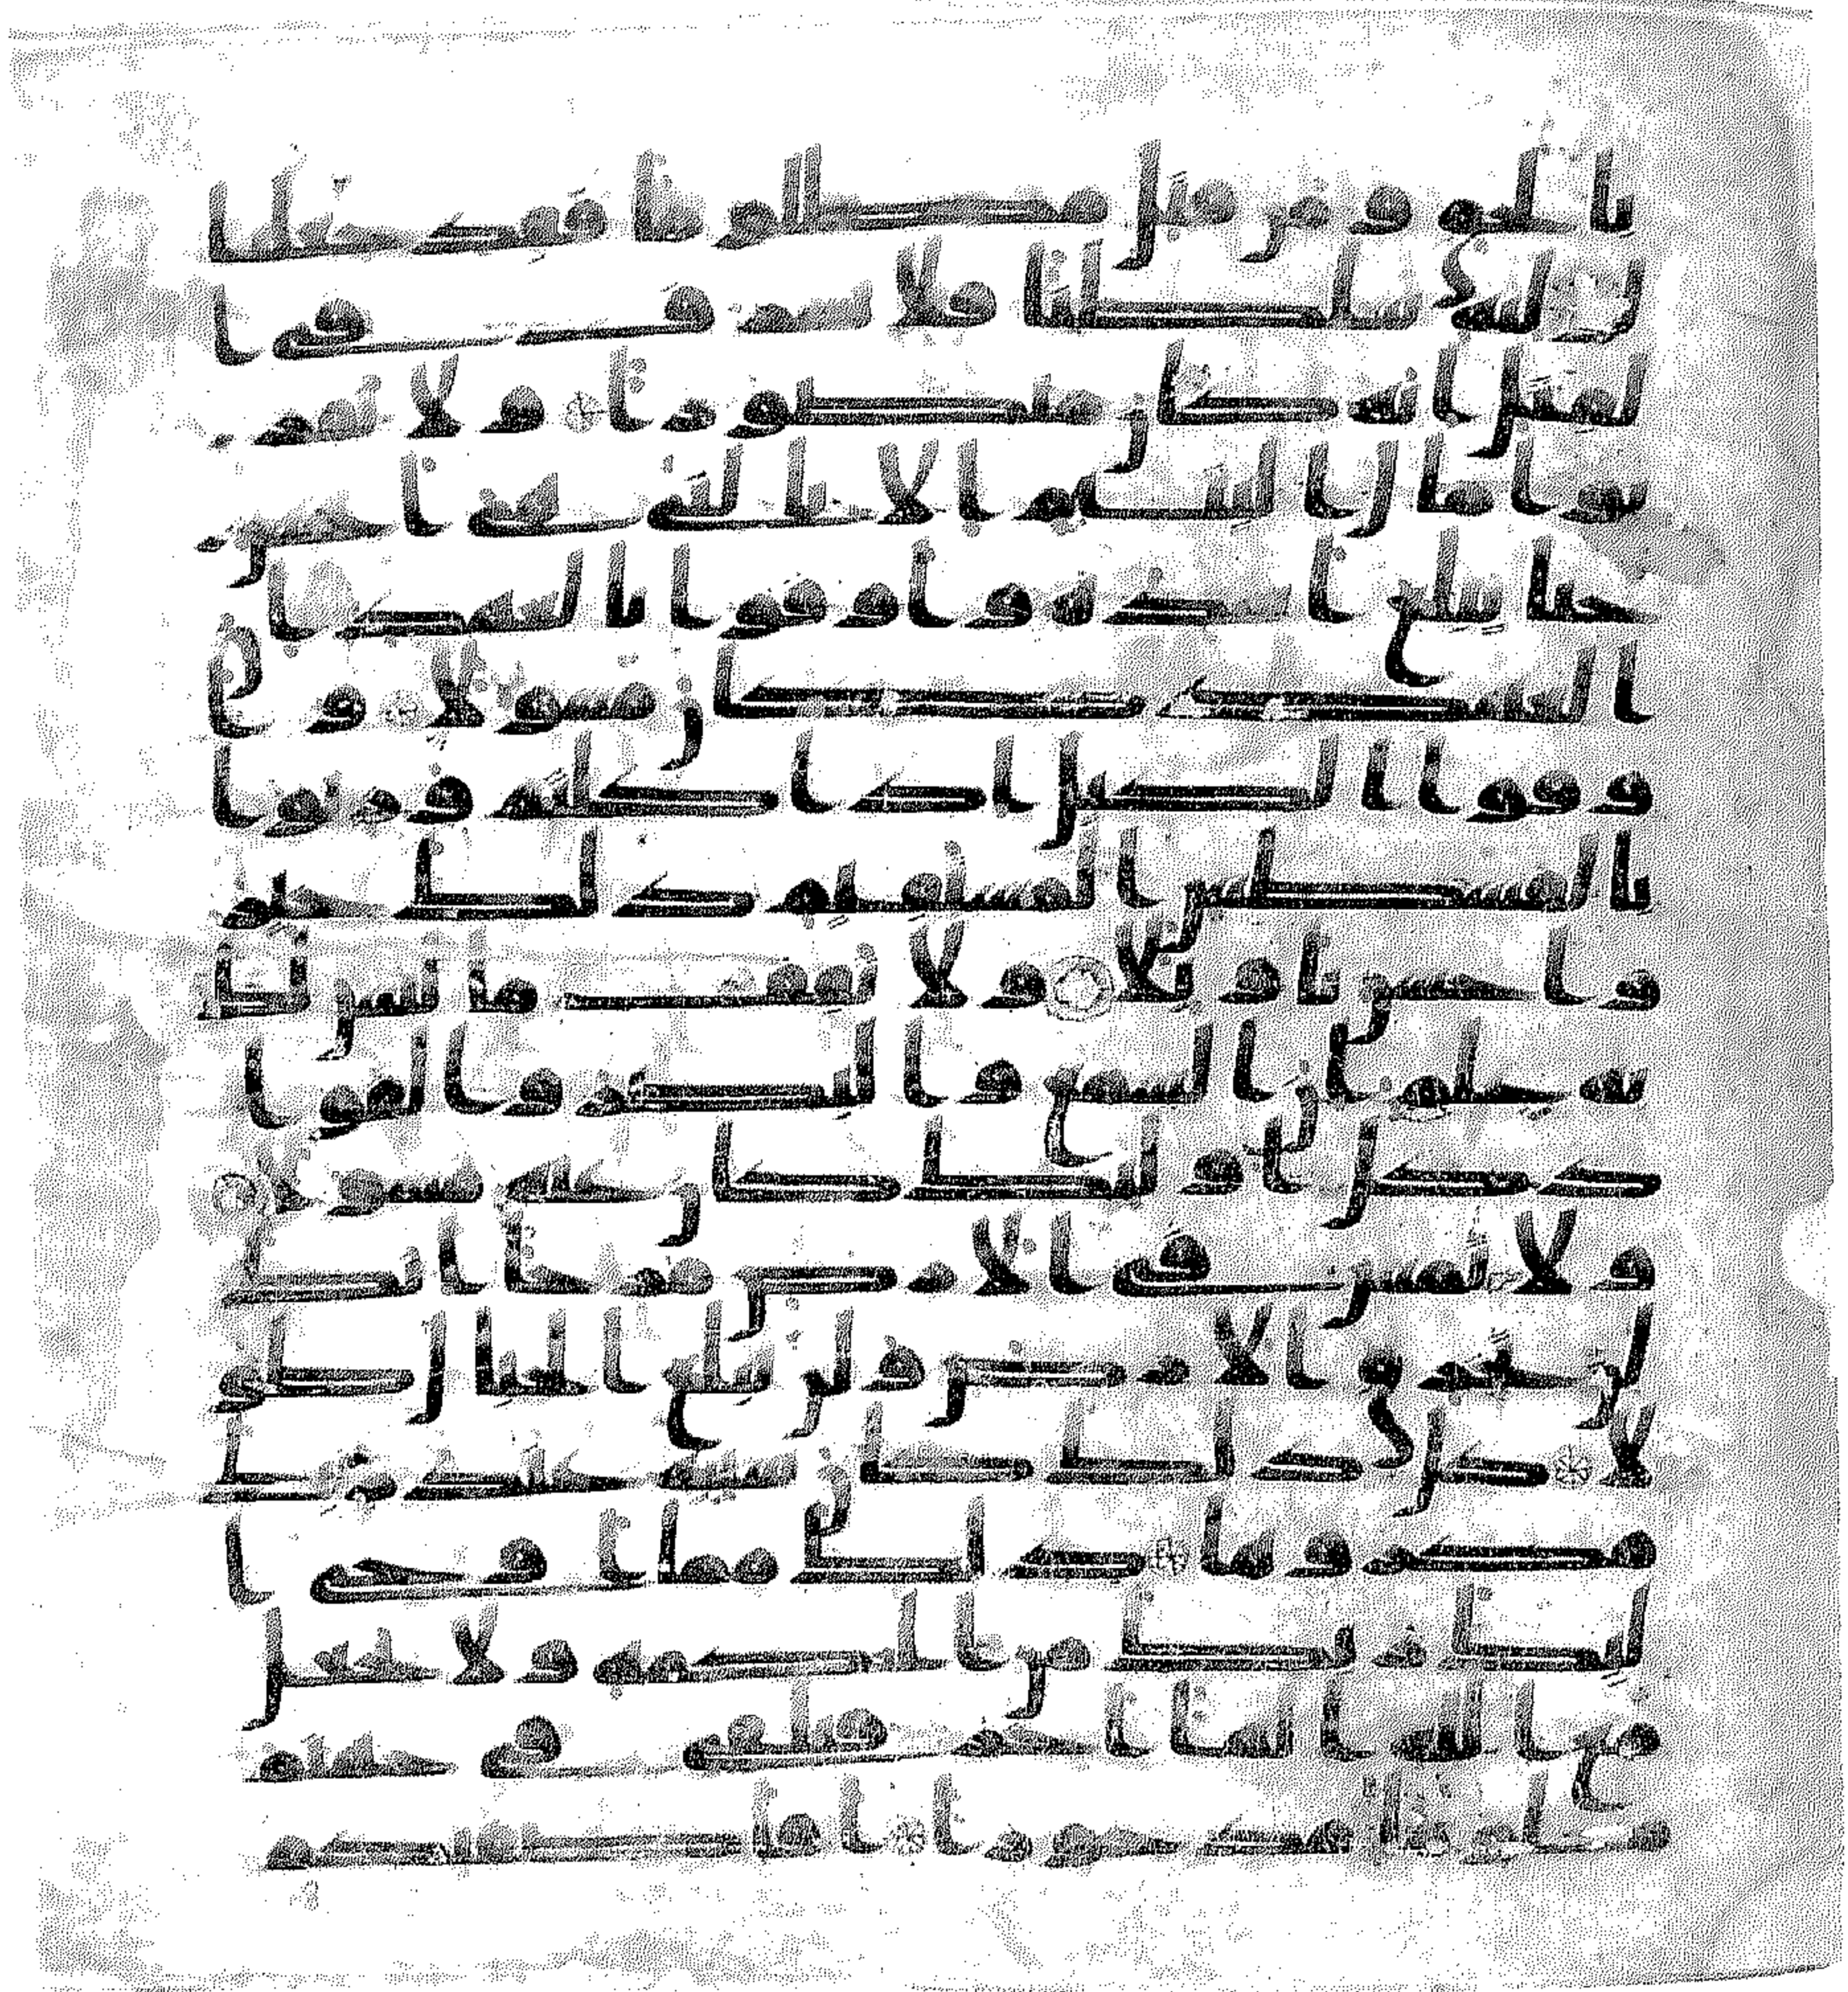 بالحق ومن قتل مظلوما فقد جعلنا
لوليه سلطنا فلا يسرف في ا
لقتل انه كان منصورا ولا تقر
بوا مال اليتيم الا بالتي هي احسن
حتى يبلغ اشده واوفوا بالعهد ان
العهد كان مسولا وا
وفوا الكيل اذا كلتم وزنوا
بالقسطاس المستقيم ذلك خير
واحسن تاويلا ولا تقف ما ليس لك
به علم ان السمع والبصر والفوا
د كل اوليك كان عنه مسولا
ولا تمش في الارض مرحا انك
لن تخرق الارض ولن تبلغ الجبال طو
لا كل ذلك كان سيئه عند ربك
مكروها ذلك مما اوحى ا
ليك ربك من الحكمة ولا تجعل
مع الله الها اخر فتلقى في جهنم
ملوما مدحورا افاصفيكم